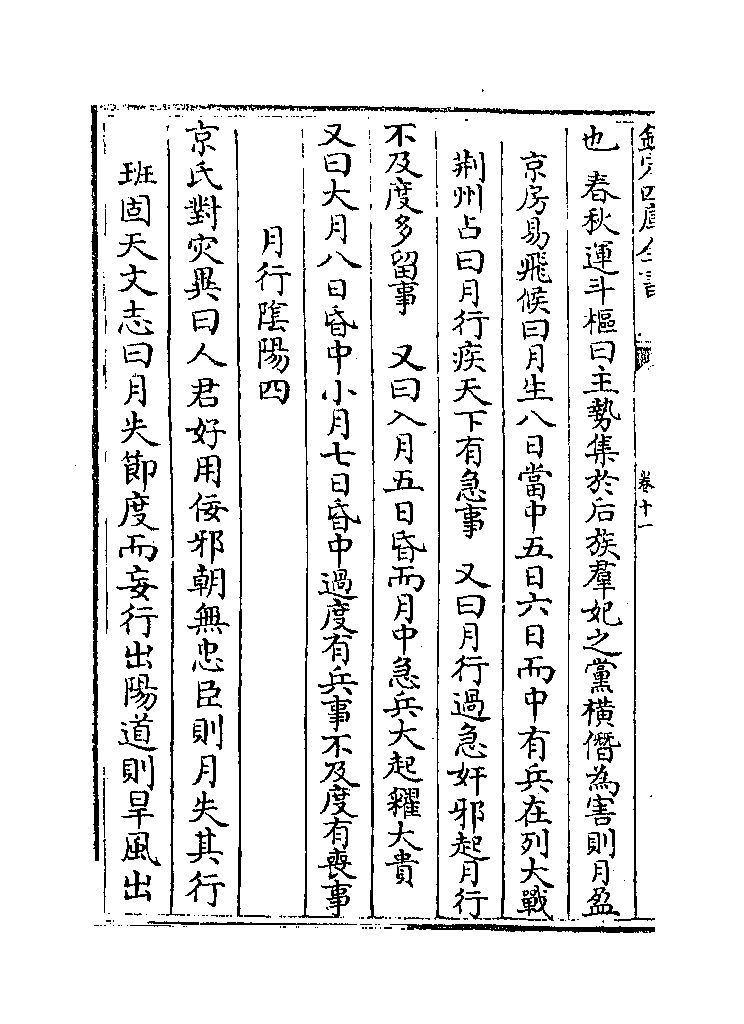 欽定四庫全書 卷十一
也 春秋運斗樞曰主勢集於后族羣妃之黨橫僭為害則月盈
京房易飛候曰月生八日當中五日六日而中有兵在列大戰
荆州占曰月行疾天下有急事 又曰月行過急奸邪起月行
不及度多留事 又曰入月五日昏而月中急兵大起糴大貴
又曰大月八日昏中小月七日昏中過度有兵事不及度有喪事
月行隂陽四
京氏對灾異曰人君好用佞邪朝無忠臣則月失其行
班固天文志曰月失節度而妄行出陽道則旱風出